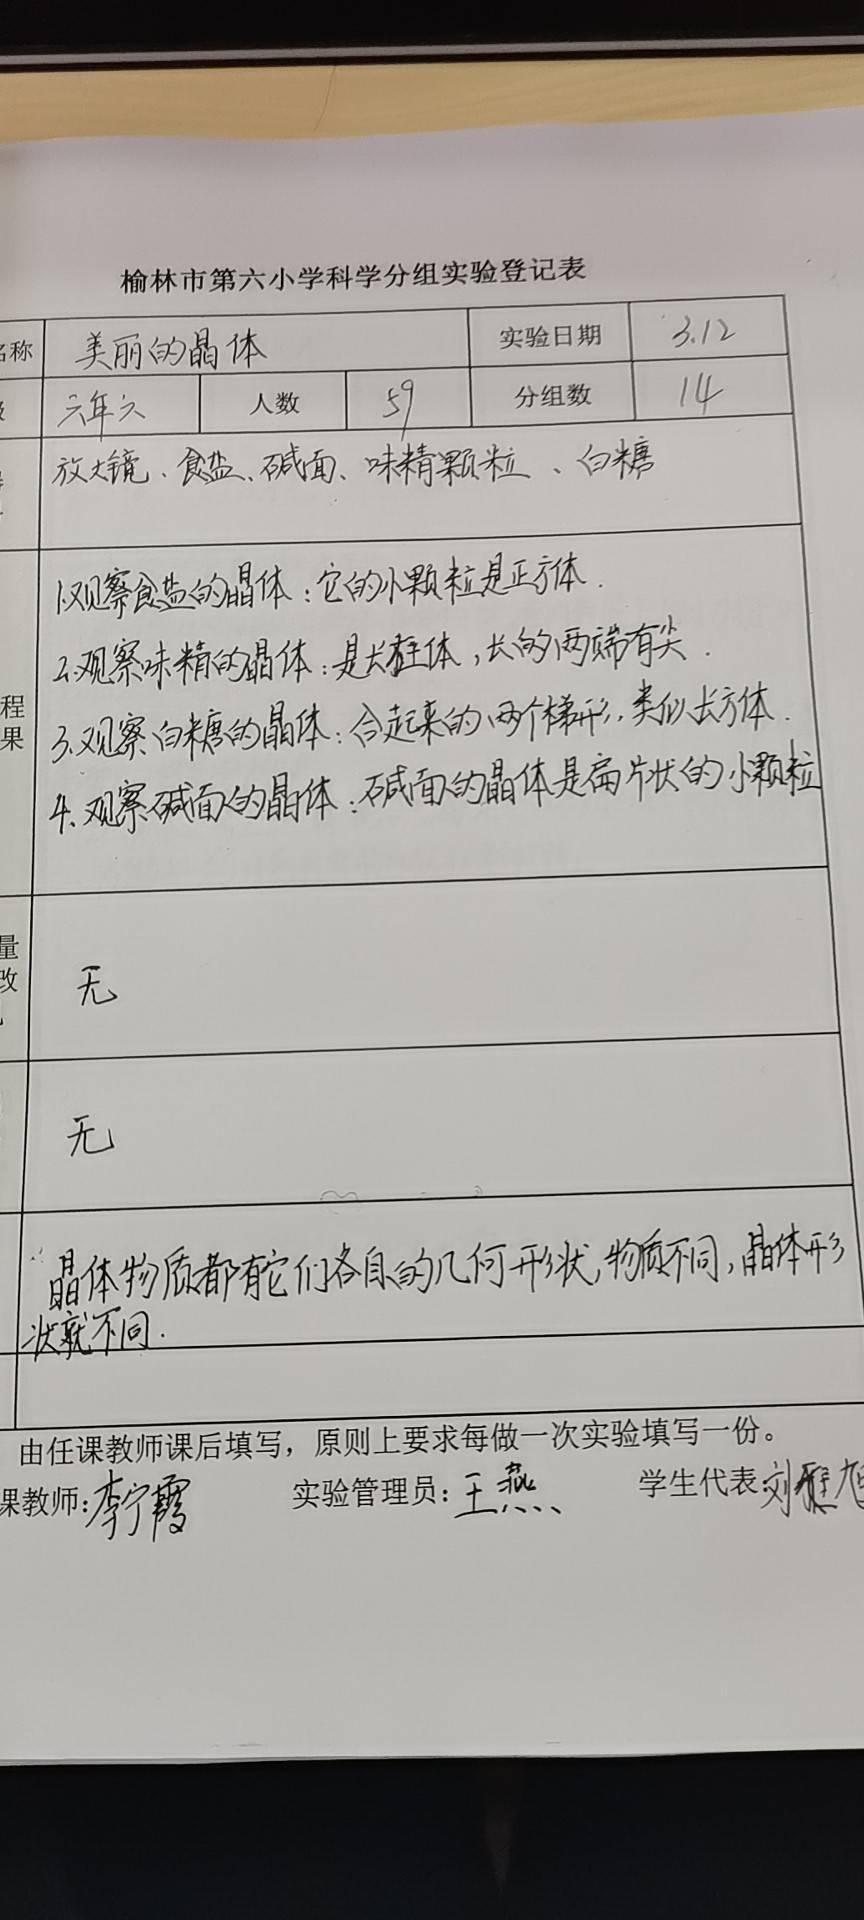 榆林市第六小学科学分组实验登记表
名称 美丽的晶体 实验日期 3.12
级 六年六 人数 59 分组数 14
放大镜、食盐、碱面、味精颗粒、白糖
1.观察食盐的晶体:它的小颗粒是正方体.
2.观察味精的晶体:是长柱体,长的两端有尖.
程
果
3.观察白糖的晶体:合起来的两个梯形,类似长方体.
4.观察碱面的晶体:碱面的晶体是扁片状的小颗粒
量
改
无
无
晶体物质都有它们各自的几何形状,物质不同,晶体形
状就不同.
由任课教师课后填写,原则上要求每做一次实验填写一份。
课教师:李宁霞 实验管理员:王燕 学生代表:刘雅旭